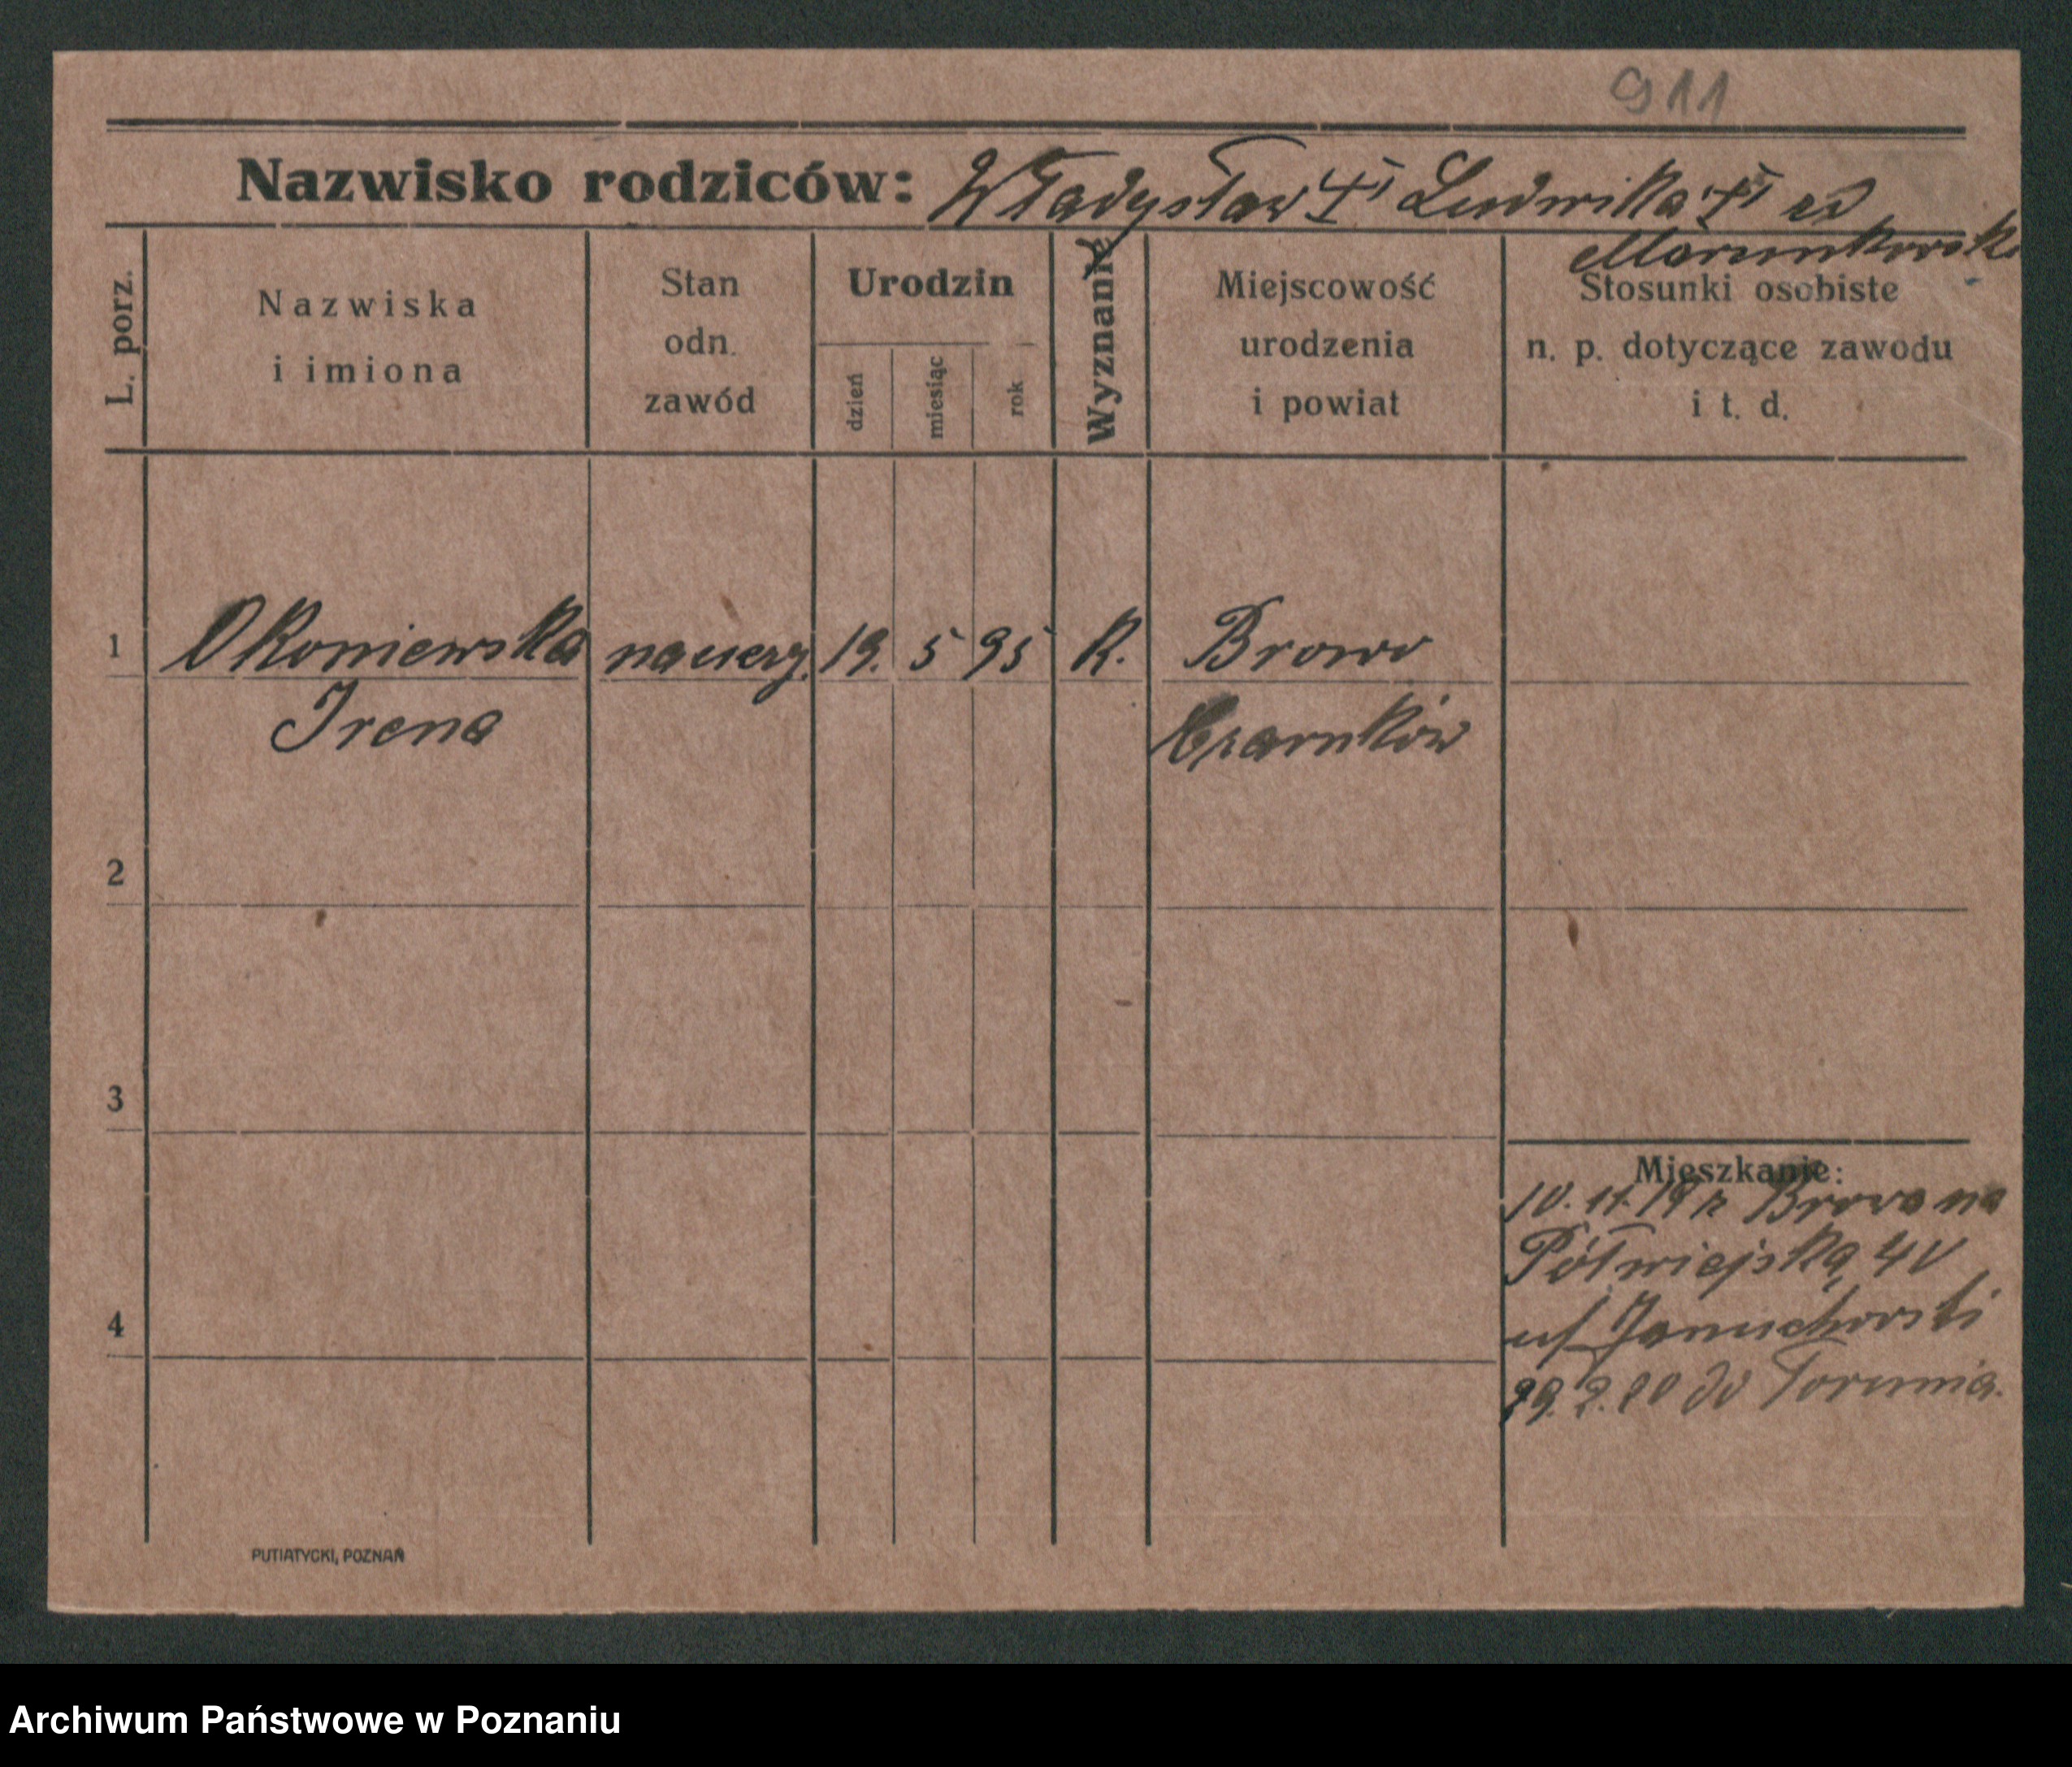 911
Nazwisko rodziców: Władysław Ludwika
L. porz.
Nazwiska
i imiona
Stan
odn.
zawód
Urodzin
dzień
miesiąc
rok
Wyznanie
Miejscowość
urodzenia
i powiat
Stosunki osobiste
n. p. dotyczące zawodu
i t. d.
1 Okoniewska nauczy. 19. 5 95 K. Browo
Irena Czarnków
2
3
Mieszkanie:
10. 11. 19 r
Półwiejską
4
do Torunia.
PUTIATYCKI, POZNAŃ
Archiwum Państwowe w Poznaniu